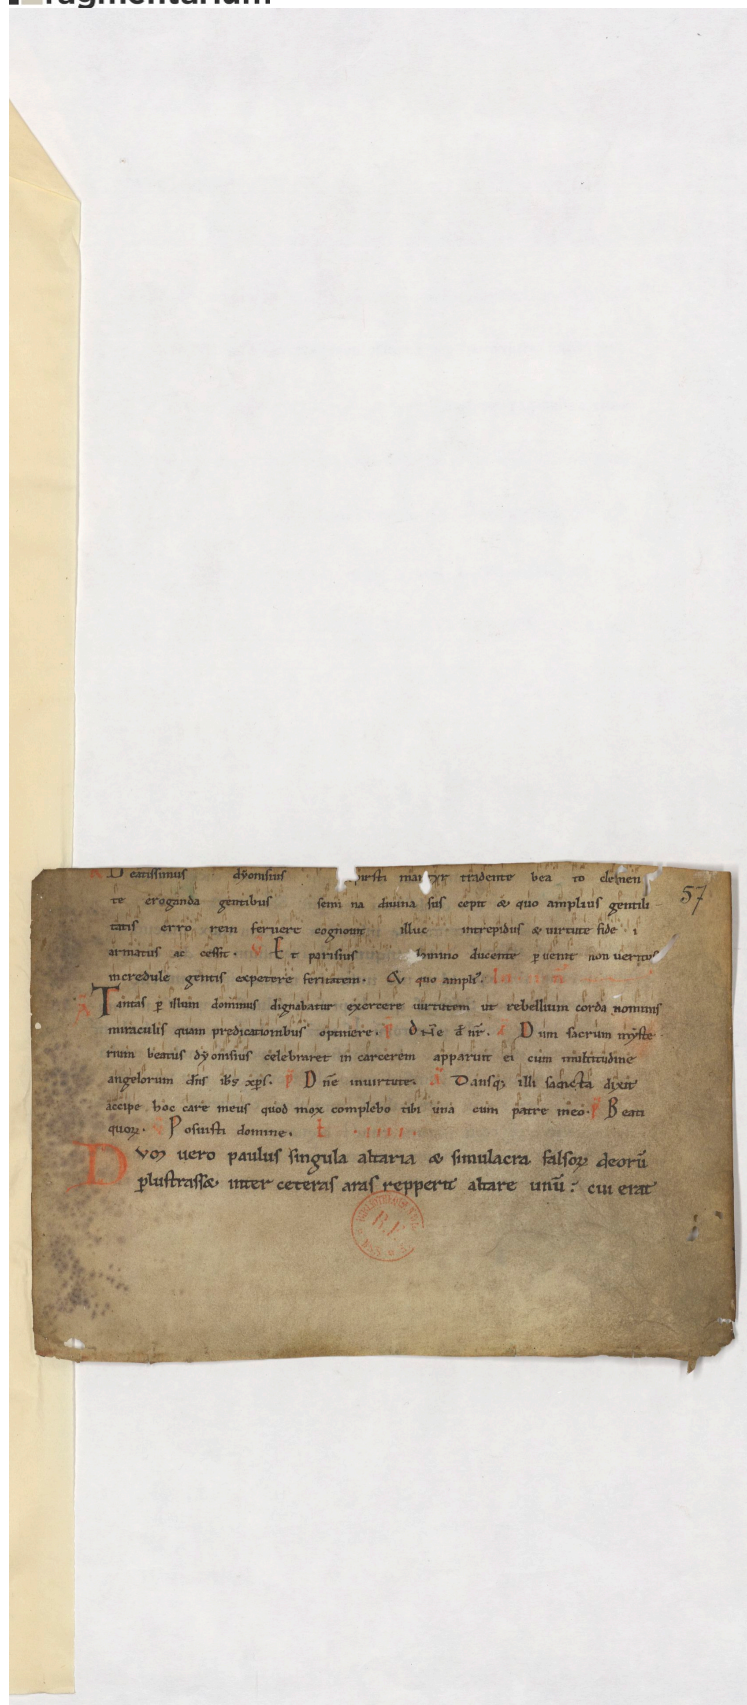 Fragmentarium
57
Beatissimus dyonisius xpisti martyr tradente bea to clemen
te eroganda gentibus semi na diuina sus cepit & quo amplius gentili
tatis erro rem feruere cognouit illuc intrepidus & uirtute fide i
armatus ac cessit. V Et parisius domino ducente puenit non ueritus
incredule gentis expetere feritatem. & quo ampli⁹.
Tantas p illum dominus dignabatur exercere uirtutem ut rebellium corda nominis
miraculis quam predicationibus optinere. p dñe d nr. a Dum sacrum myste
rium beatus dyonisius celebraret in carcerem apparuit ei cum multitudine
angelorum dñs ihs xps. p Dne inuirtute. a Dansq; illi sancta dixit
accipe hoc care meus quod mox complebo tibi una cum patre meo. p Beati
quoꝝ. Posuisti domine. L .IIII.
Duꝫ uero paulus singula altaria & simulacra falsoꝝ deorū
plustrass& inter ceteras aras repperit altare unū: cui erat
BIBLIOTHEQUE
R.F.